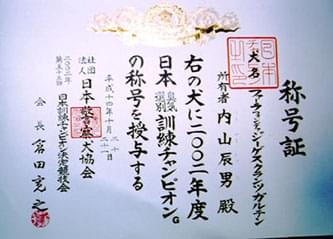 称号証
犬名
フォン
所有者 内山辰男 殿
右の犬に二〇〇二年度
日本 訓練チャンピオンG
の称号を授与する
平成十四年十月二十日
二十一日
社団法人 日本警察犬協会
二〇〇二年
日本訓練チャンピオン決定競技会
会長